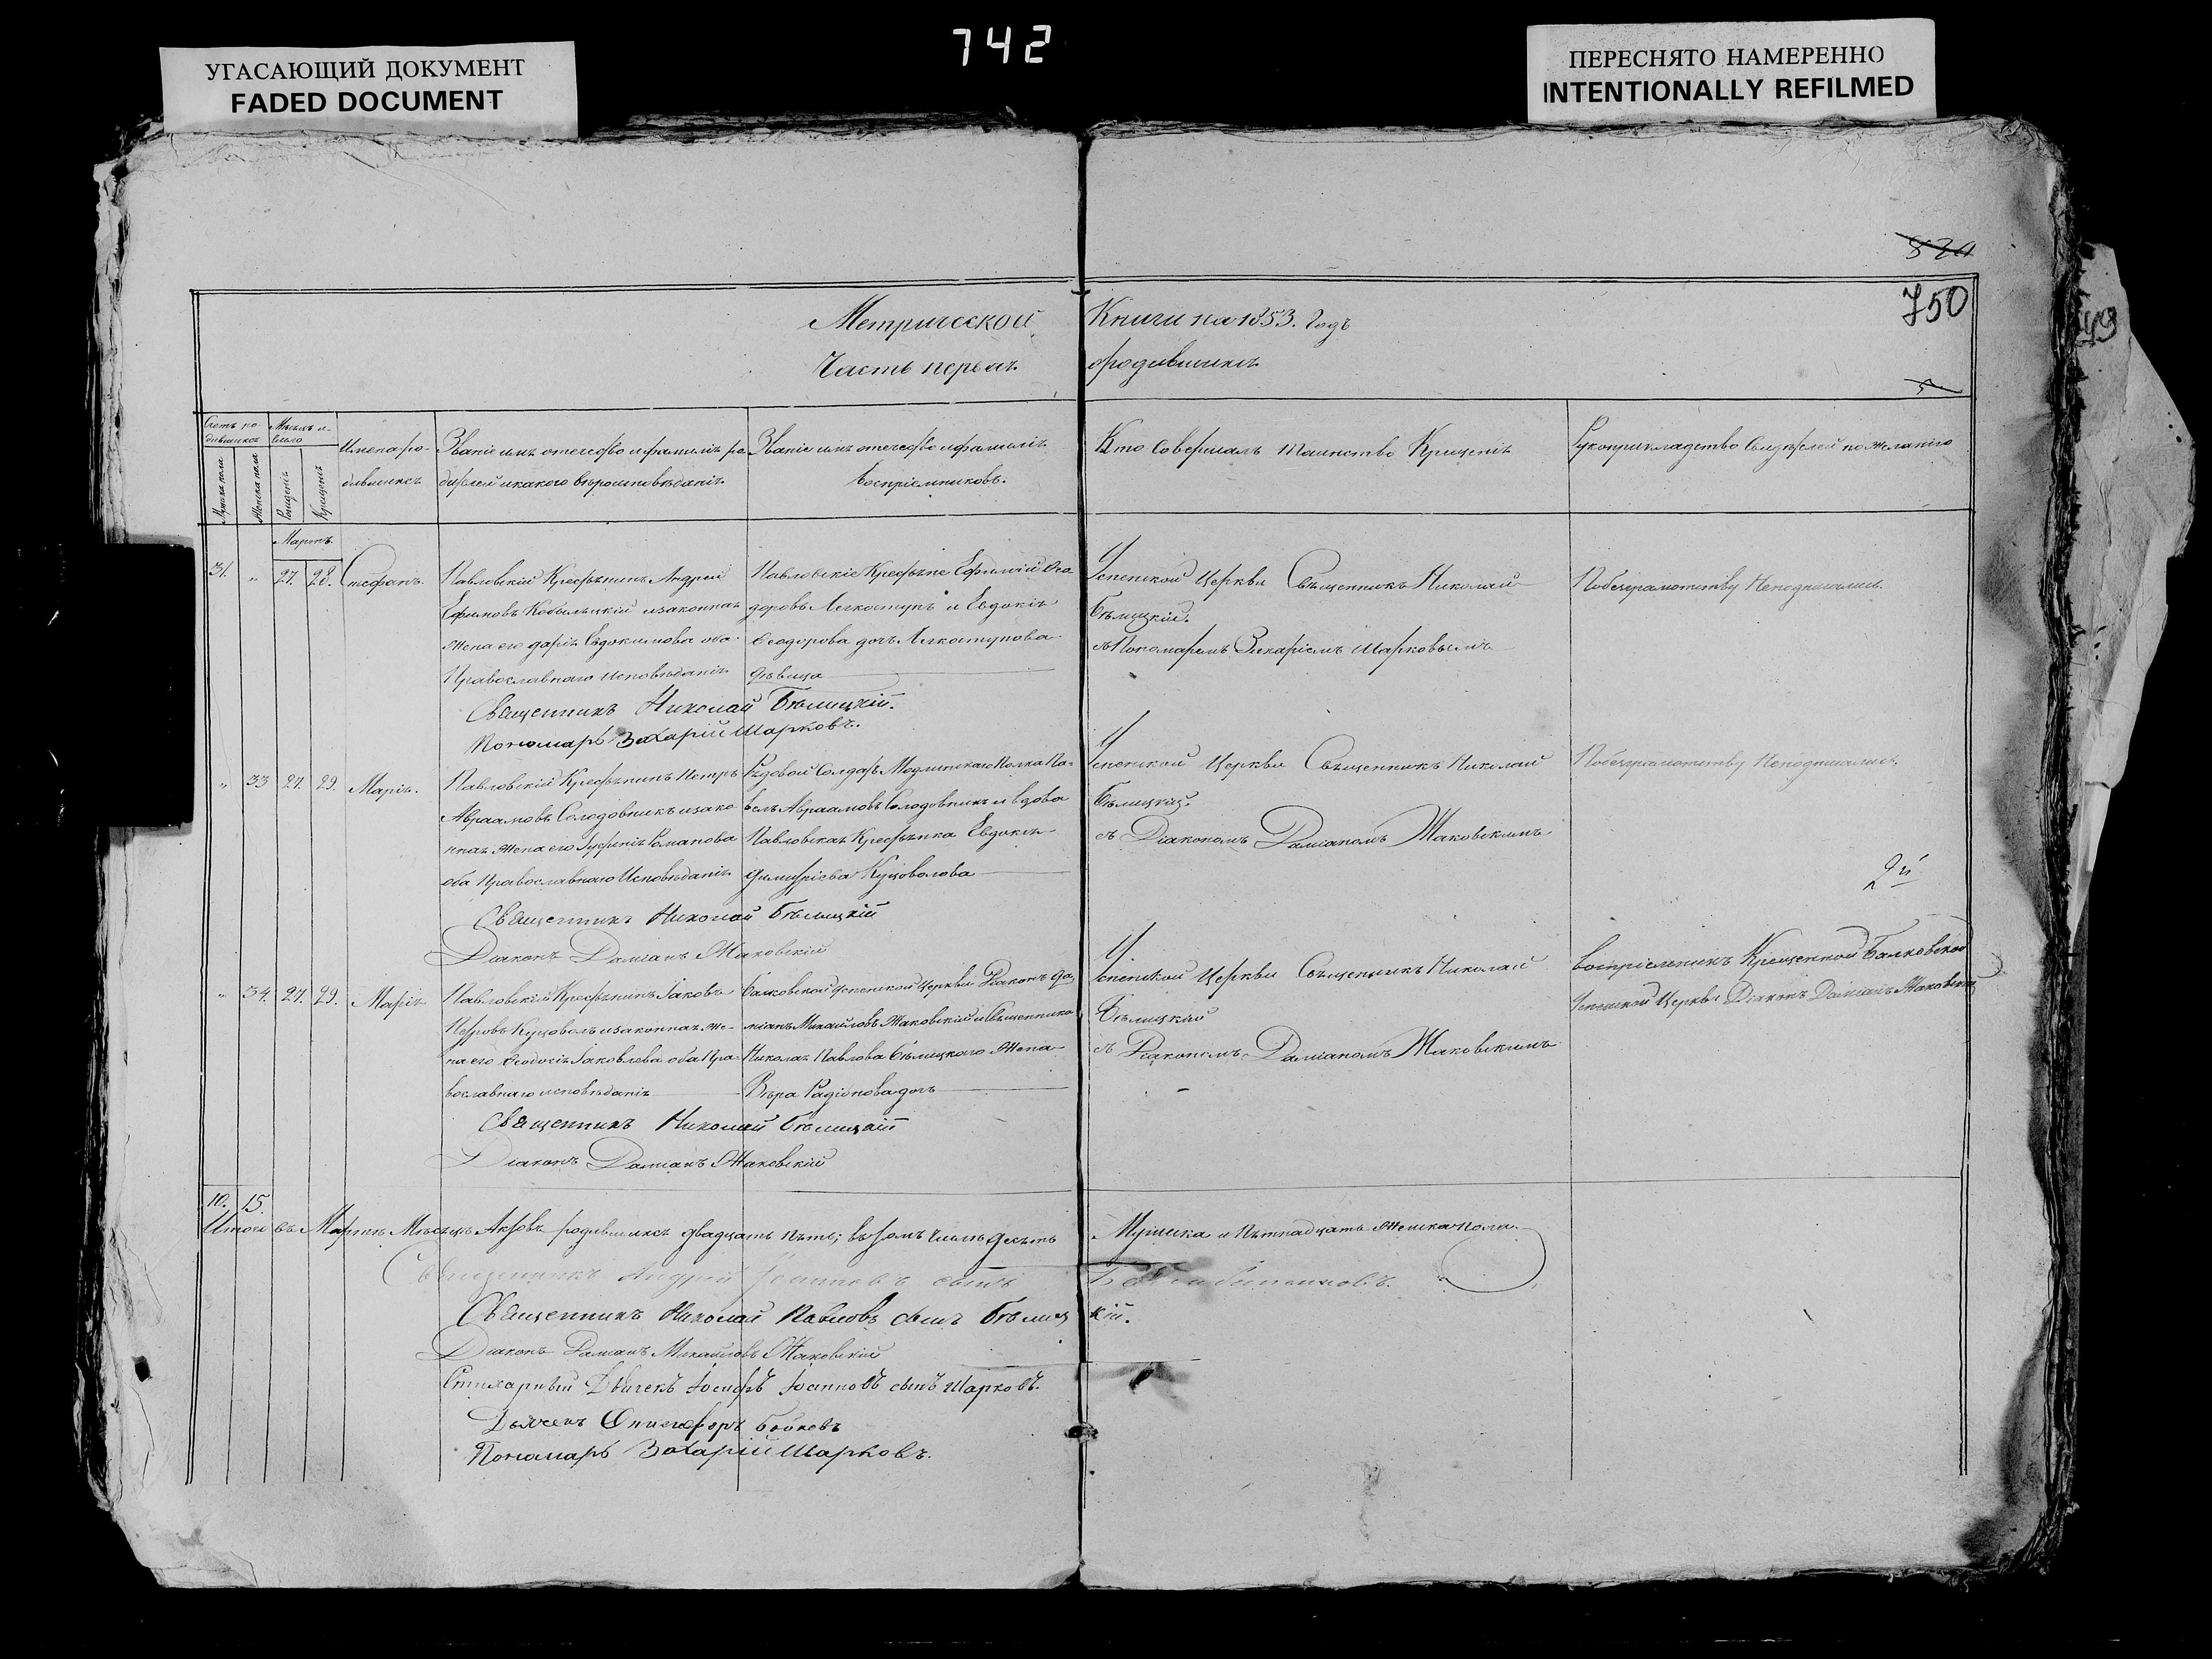 742
УГАСАЮЩИЙ ДОКУМЕНТ
FADED DOCUMENT
ПЕРЕСНЯТО НАМЕРЕННО
INTENTIONALLY REFILMED
750
Метрической Книги на 1853. Годъ
Часть первая. о родившихся
Счетъ ро-
дившихся
Мужска пола
Женска пола
Мѣсяцъ и
число
Рожденія
Крещенія
Имена ро-
дившихся
Званіе имя отечество и фамилія ро-
дителей и какого вѣроисповѣданія.
Званіе имя отечество и фамилія
воспріемниковъ.
Кто совершалъ таинство Крещенія
Рукоприкладство Свидѣтелей по желанію
Мартъ
31. " 27. 28. Стефанъ.
Павловскій Крестьянинъ Андрей
Ефимовъ Кобыляцкій и законная
жена его Дарія Евдокимова оба
Православнаго исповѣданія
Павловскіе Крестьяне Ефимій Ѳео-
доровъ Легкоступъ и Евдокія
Ѳеодорова дочь Легкоступова
дѣвица
Успенской Церкви Священникъ Николай
Бѣлицкій.
съ Пономаремъ Захаріемъ Шарковымъ
По безграмотству Неподписались.
Священникъ Николай Бѣлицкій.
Пономарь Захарій Шарковъ.
" 33 27. 29. Марія.
Павловскій Крестьянинъ Петръ
Авраамовъ Солодовникъ и зако-
нная жена его Романова
оба Православнаго Исповѣданія
Рядовой Солдатъ Модлинскаго Полка Па-
велъ Авраамовъ Солодовникъ и вдова
Павловская Крестьянка Евдокія
Димитріева Куцоволова
Успенской Церкви Священникъ Николай
Бѣлицкій.
съ Діакономъ Даміаномъ Жаковскимъ
По безграмотству Неподписались.
Священникъ Николай Бѣлицкій
Діаконъ Даміанъ Жаковскій
" 34. 27. 29. Марія
Павловскій Крестьянинъ Іаковъ
Петровъ Куцоволъ и законная же-
на его Ѳеодосія Іаковлева оба Пра-
вославнаго исповѣданія
Балковской Успенской Церкви Діаконъ Да-
міанъ Михайловъ Жаковскій и Священника
Николая Павлова Бѣлицкого Жена
Вѣра Радіонова дочь
Успенской Церкви Священникъ Николай
Бѣлицкій
съ Діакономъ Даміаномъ Жаковскимъ
Воспріемникъ Крещенной Балковской
Успенской Церкви Діаконъ Даміанъ Жаковскій
Священникъ Николай Бѣлицкій
Діаконъ Даміанъ Жаковскій
10. 15.
Итого въ Мартѣ Мѣсяцѣ Актовъ родившихся двадцать пять; въ томъ числѣ десять Мужска и Пятнадцать Женска пола.
Священникъ Андрей Іоанновъ сынъ
Священникъ Николай Павловъ сынъ Бѣлицкій.
Діаконъ Даміанъ Михайловъ Жаковскій
Стихарный Дьячекъ Іосифъ Іоанновъ сынъ Шарковъ.
Дьячекъ Онисифоръ Бойковъ
Пономарь Захарій Шарковъ.